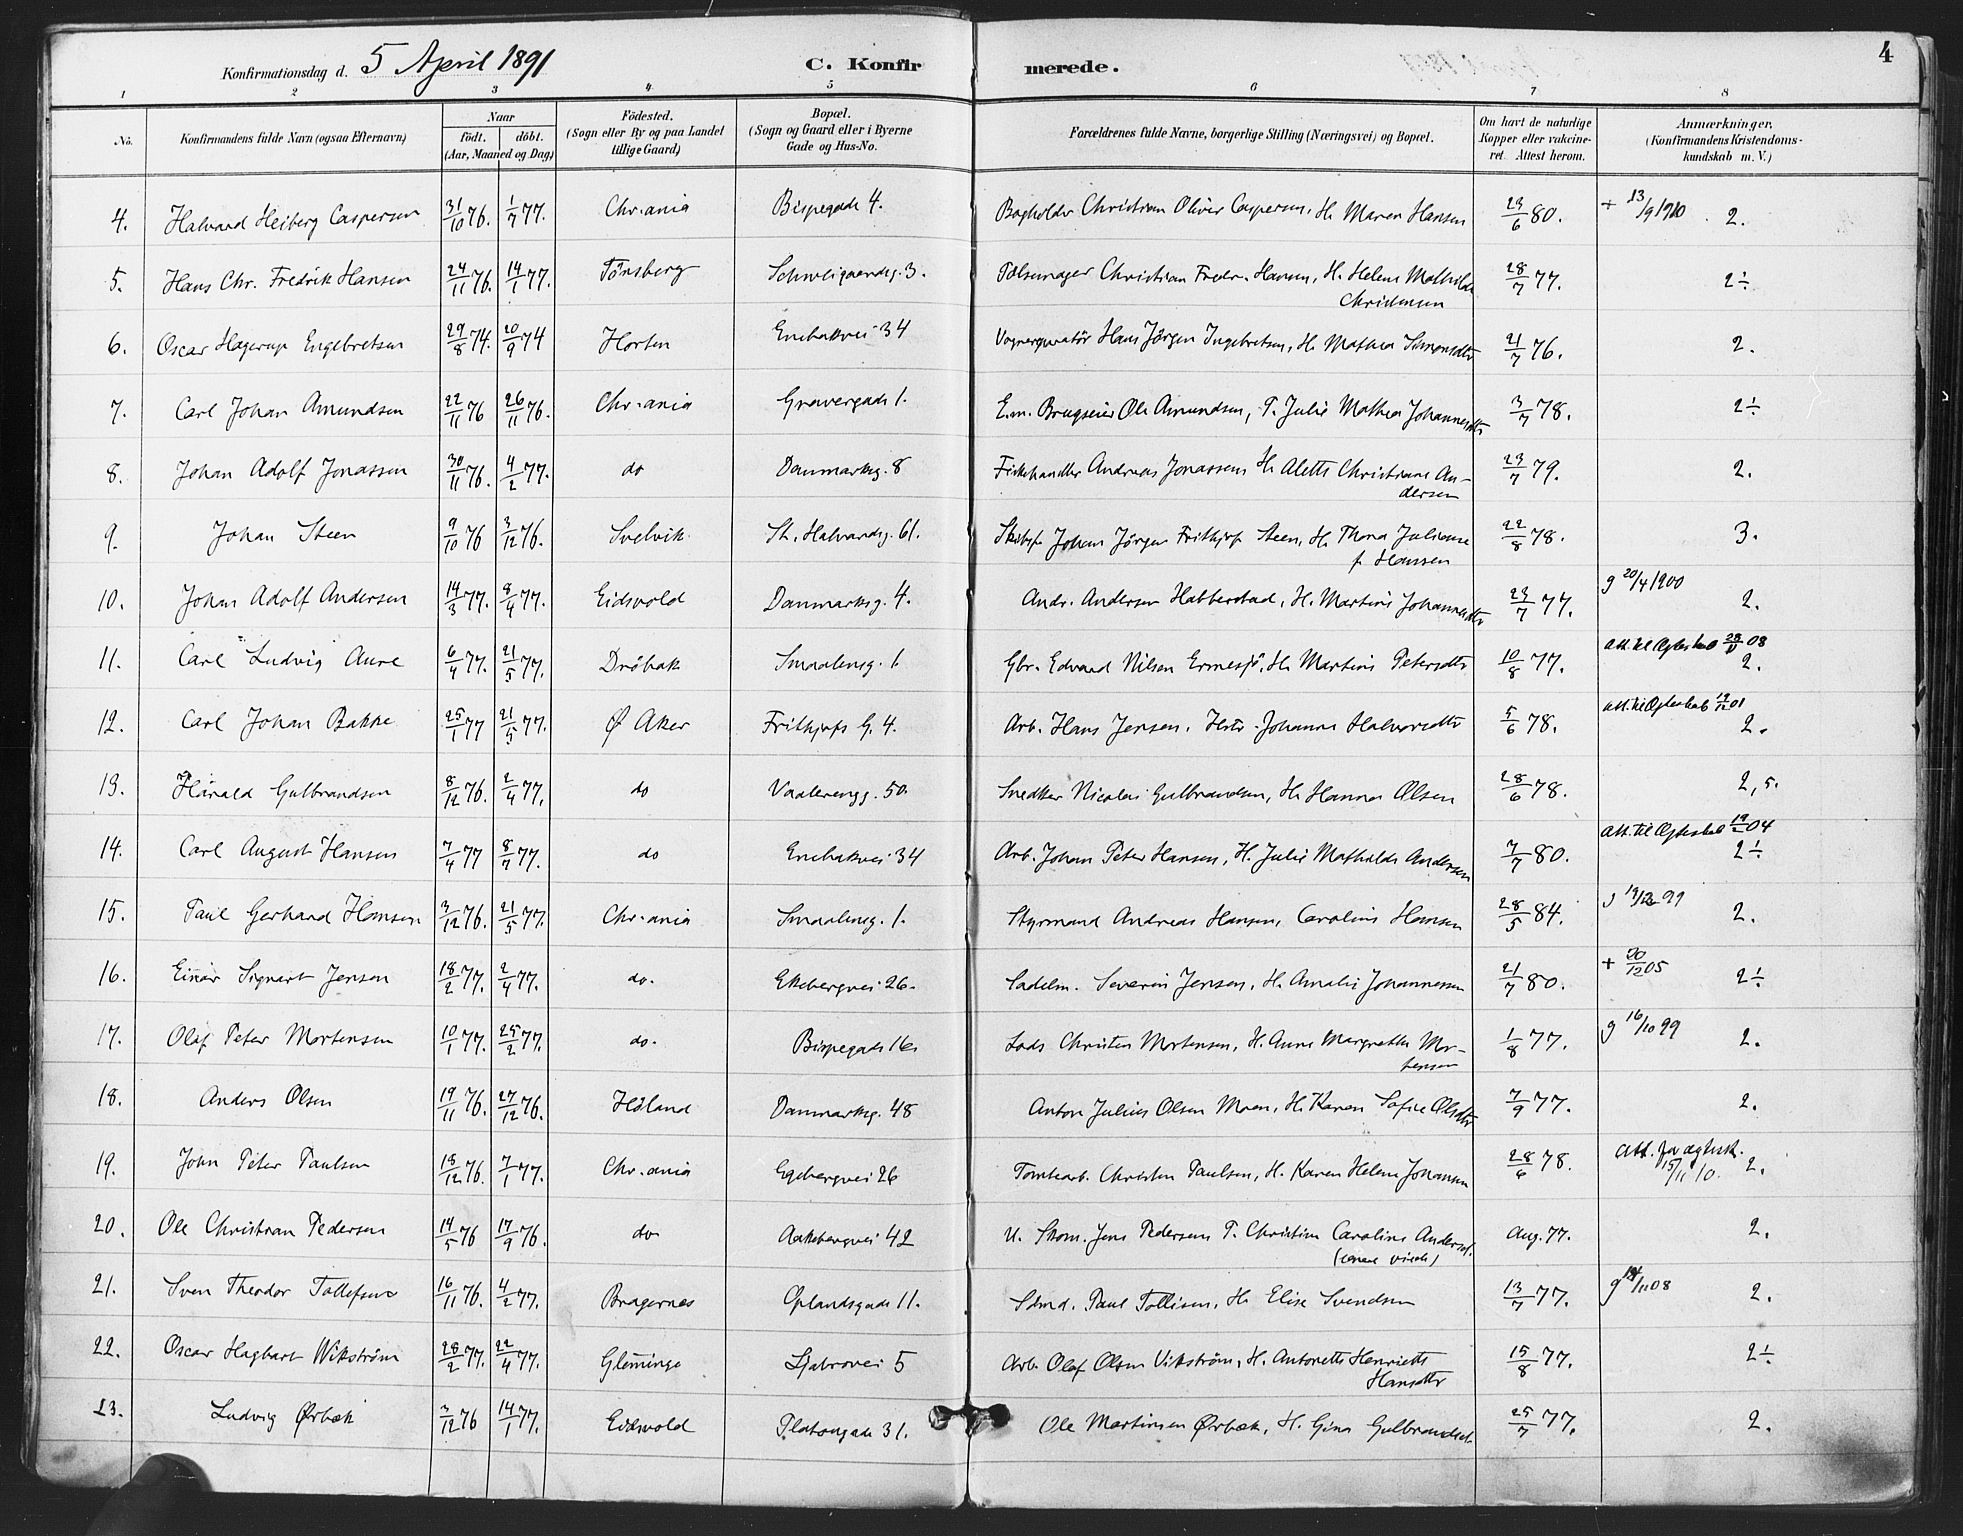 Konfirmationsdag d. 5 April 1891 C. Konfirmerede. 4
1 2 3 4 5 6 7 8
No. Konfirmandens fulde Navn (ogsaa Efternavn) Naar født. døbt. (Aar, Maaned og Dag) Födested. (Sogn eller By og paa Landet tillige Gaard) Bopæl. (Sogn og Gaard eller i Byerne Gade og Hus-No. Forældrenes fulde Navne, borgerlige Stilling (Næringsvei) og Bopæl. Om havt de naturlige Kopper eller vakcineret. Attest herom. Anmærkninger, (Konfirmandens Kristendomskundskab m. V.)
4. Halvard Heiberg Caspersen 31/10 76. 1/7 77. Chr.ania Bispegade 4. Bogholder Christian Oliver Caspersen, H. Maren Hansen 23/6 80. + 13/9 1910 2.
5. Hans Chr. Fredrik Hansen 24/11 76. 14/1 77. Tönsberg Schweigaardsg. 3. Pölsemager Christian Fredr. Hansen, H. Helene Mathilde Christensen 28/7 77. 2÷
6. Oscar Hagerup Engebretsen 29/8 74. 20/9 74 Horten Enebakvei 34 Vognreparatör Hans Jørgen Ingebretsen, H. Mathea Simonsdtr 21/7 76. 2.
7. Carl Johan Amundsen 22/11 76 26/11 76. Chr.ania Grønvergade 1. E.m. Brugseier Ole Amundsen, P. Julie Mathea Johannesdtr 3/7 78. 2÷
8. Johan Adolf Jonassen 30/11 76. 4/2 77. do Danmarksg. 8 Fiskehandler Andreas Jonassen, H. Alette Christiane Andersen 23/7 79. 2.
9. Johan Steen 9/10 76 3/12 76. Svelvik St. Halvardsg. 61. Skibsf. Johan Jørgen Frithjof Steen, H. Thora Juliane f. Hansen 22/8 78. 3.
10. Johan Adolf Andersen 14/3 77. 8/4 77. Eidsvold Danmarksg. 4. Andr. Andersen Habberstad, H. Martine Johannesdtr 23/7 77. g 20/4 1900 2.
11. Carl Ludvig Aure 6/4 77. 21/5 77. Dröbak Smaalensg. 1. Gbr. Edvard Nilsen Ermesjö, H. Martine Petersdtr 10/8 77. att. til Ægteskab 08 2.
12. Carl Johan Bakke 25/1 77 21/5 77. Ø Aker Frithjofs G. 4. Arb. Hans Jensen, Hstr. Johanne Halvorsdtr 5/6 78. att. til Ægteskab 19/12 01 2.
13. Harald Gulbrandsen 8/12 76. 2/4 77. do Vaalerengg. 50. Snedker Nicolai Gulbrandsen, H. Hanna Olsen 28/6 78. 2,5.
14. Carl August Hansen 7/4 77 8/7 77. do Enebakvei 34 Arb. Johan Peter Hansen, H. Julie Mathilde Andersen 7/7 80. att. til Ægteskab 19/2 04 2÷
15. Paul Gerhard Hansen 3/12 76. 21/5 77. Chr.ania Smaalensg. 1. Styrmand Andreas Hansen, Caroline Hansen 28/5 84. g 19/12 99 2.
16. Einar Sigvart Jensen 18/2 77. 2/4 77. do. Ekebergvei 26. Sadelm. Severin Jensen, H. Amalie Johannessen 21/7 80. + 20/12 05 2÷
17. Olaf Peter Mortensen 10/1 77. 25/2 77. do. Bispegade 16 Lods Christen Mortensen, H. Anne Margrethe Mortensen 1/8 77. g 16/10 99 2.
18. Anders Olsen 19/11 76. 27/12 76. Höland Danmarksg. 48 Anton Julius Olsen Moen, H. Karen Sofie Olsdtr 7/9 77. 2.
19. John Peter Paulsen 18/12 76. 7/1 77. Chr.ania Egebergvei 26 Tomtearb. Christen Paulsen, H. Karen Helene Johansen 28/6 78. Att. for ægtesk. 15/11 10. 2.
20. Ole Christian Pedersen 14/5 76 17/9 76. do Aakebergvei 42 U. Skom. Jens Pedersen P. Christine Caroline Andersd. (senere viede) Aug. 77. 2.
21. Sven Theodor Tollefsen 16/11 76. 4/2 77. Bragernes Oplandsgade 11. Sdmd. Paul Tollisen, H. Elise Svendsen 13/7 77. g 14/11 08 2.
22. Oscar Hagbart Wikström 28/2 77. 22/4 77. Glemminge Ljabrovei 5 Arb. Olof Olsen Vikström, H. Antonette Henriette Hansdtr 15/8 77. 2÷
23. Ludvig Ørbæk 3/12 76 14/1 77. Eidsvold Platougade 31. Ole Martinsen Ørbæk, H. Gina Gulbrandsd. 25/7 77. 2.